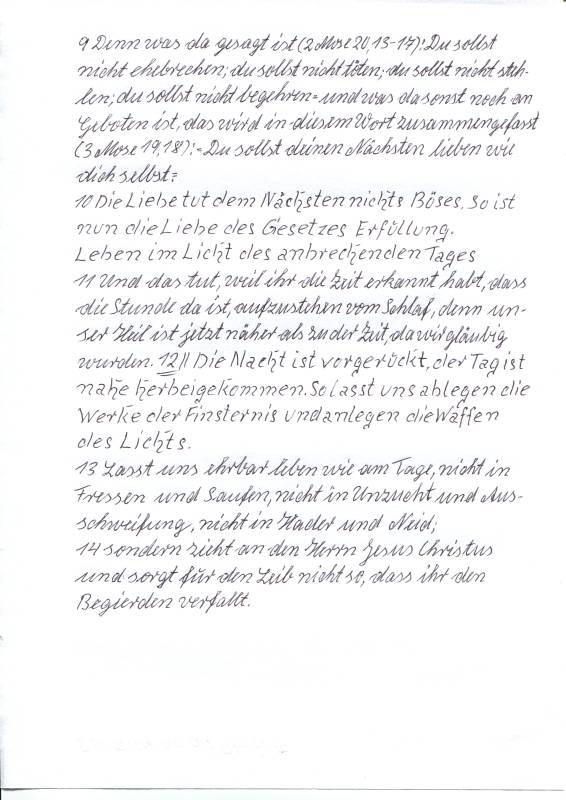 9 Denn was da gesagt ist (2 Mose 20, 13-17): Du sollst
nicht ehebrechen; du sollst nicht töten; du sollst nicht steh-
len; du sollst nicht begehren= und was da sonst noch an
Geboten ist, das wird in diesem Wort zusammengefasst
(3 Mose 19,18):=Du sollst deinen Nächsten lieben wie
dich selbst=
10 Die Liebe tut dem Nächsten nichts Böses. So ist
nun die Liebe des Gesetzes Erfüllung.
Leben im Licht des anbrechenden Tages
11 Und das tut, weil ihr die Zeit erkannt habt, dass
die Stunde da ist, aufzustehen vom Schlaf, denn un-
ser Heil ist jetzt näher als zu der Zeit, da wir gläubig
wurden. 12 // Die Nacht ist vorgerückt, der Tag ist
nahe herbeigekommen. So lasst uns ablegen die
Werke der Finsternis und anlegen die Waffen
des Lichts.
13 Lasst uns ehrbar leben wie am Tage, nicht in
Fressen und Saufen, nicht in Unzucht und Aus-
schweifung, nicht in Hader und Neid;
14 sondern zieht an den Herrn Jesus Christus
und sorgt für den Leib nicht so, dass ihr den
Begierden verfallt.